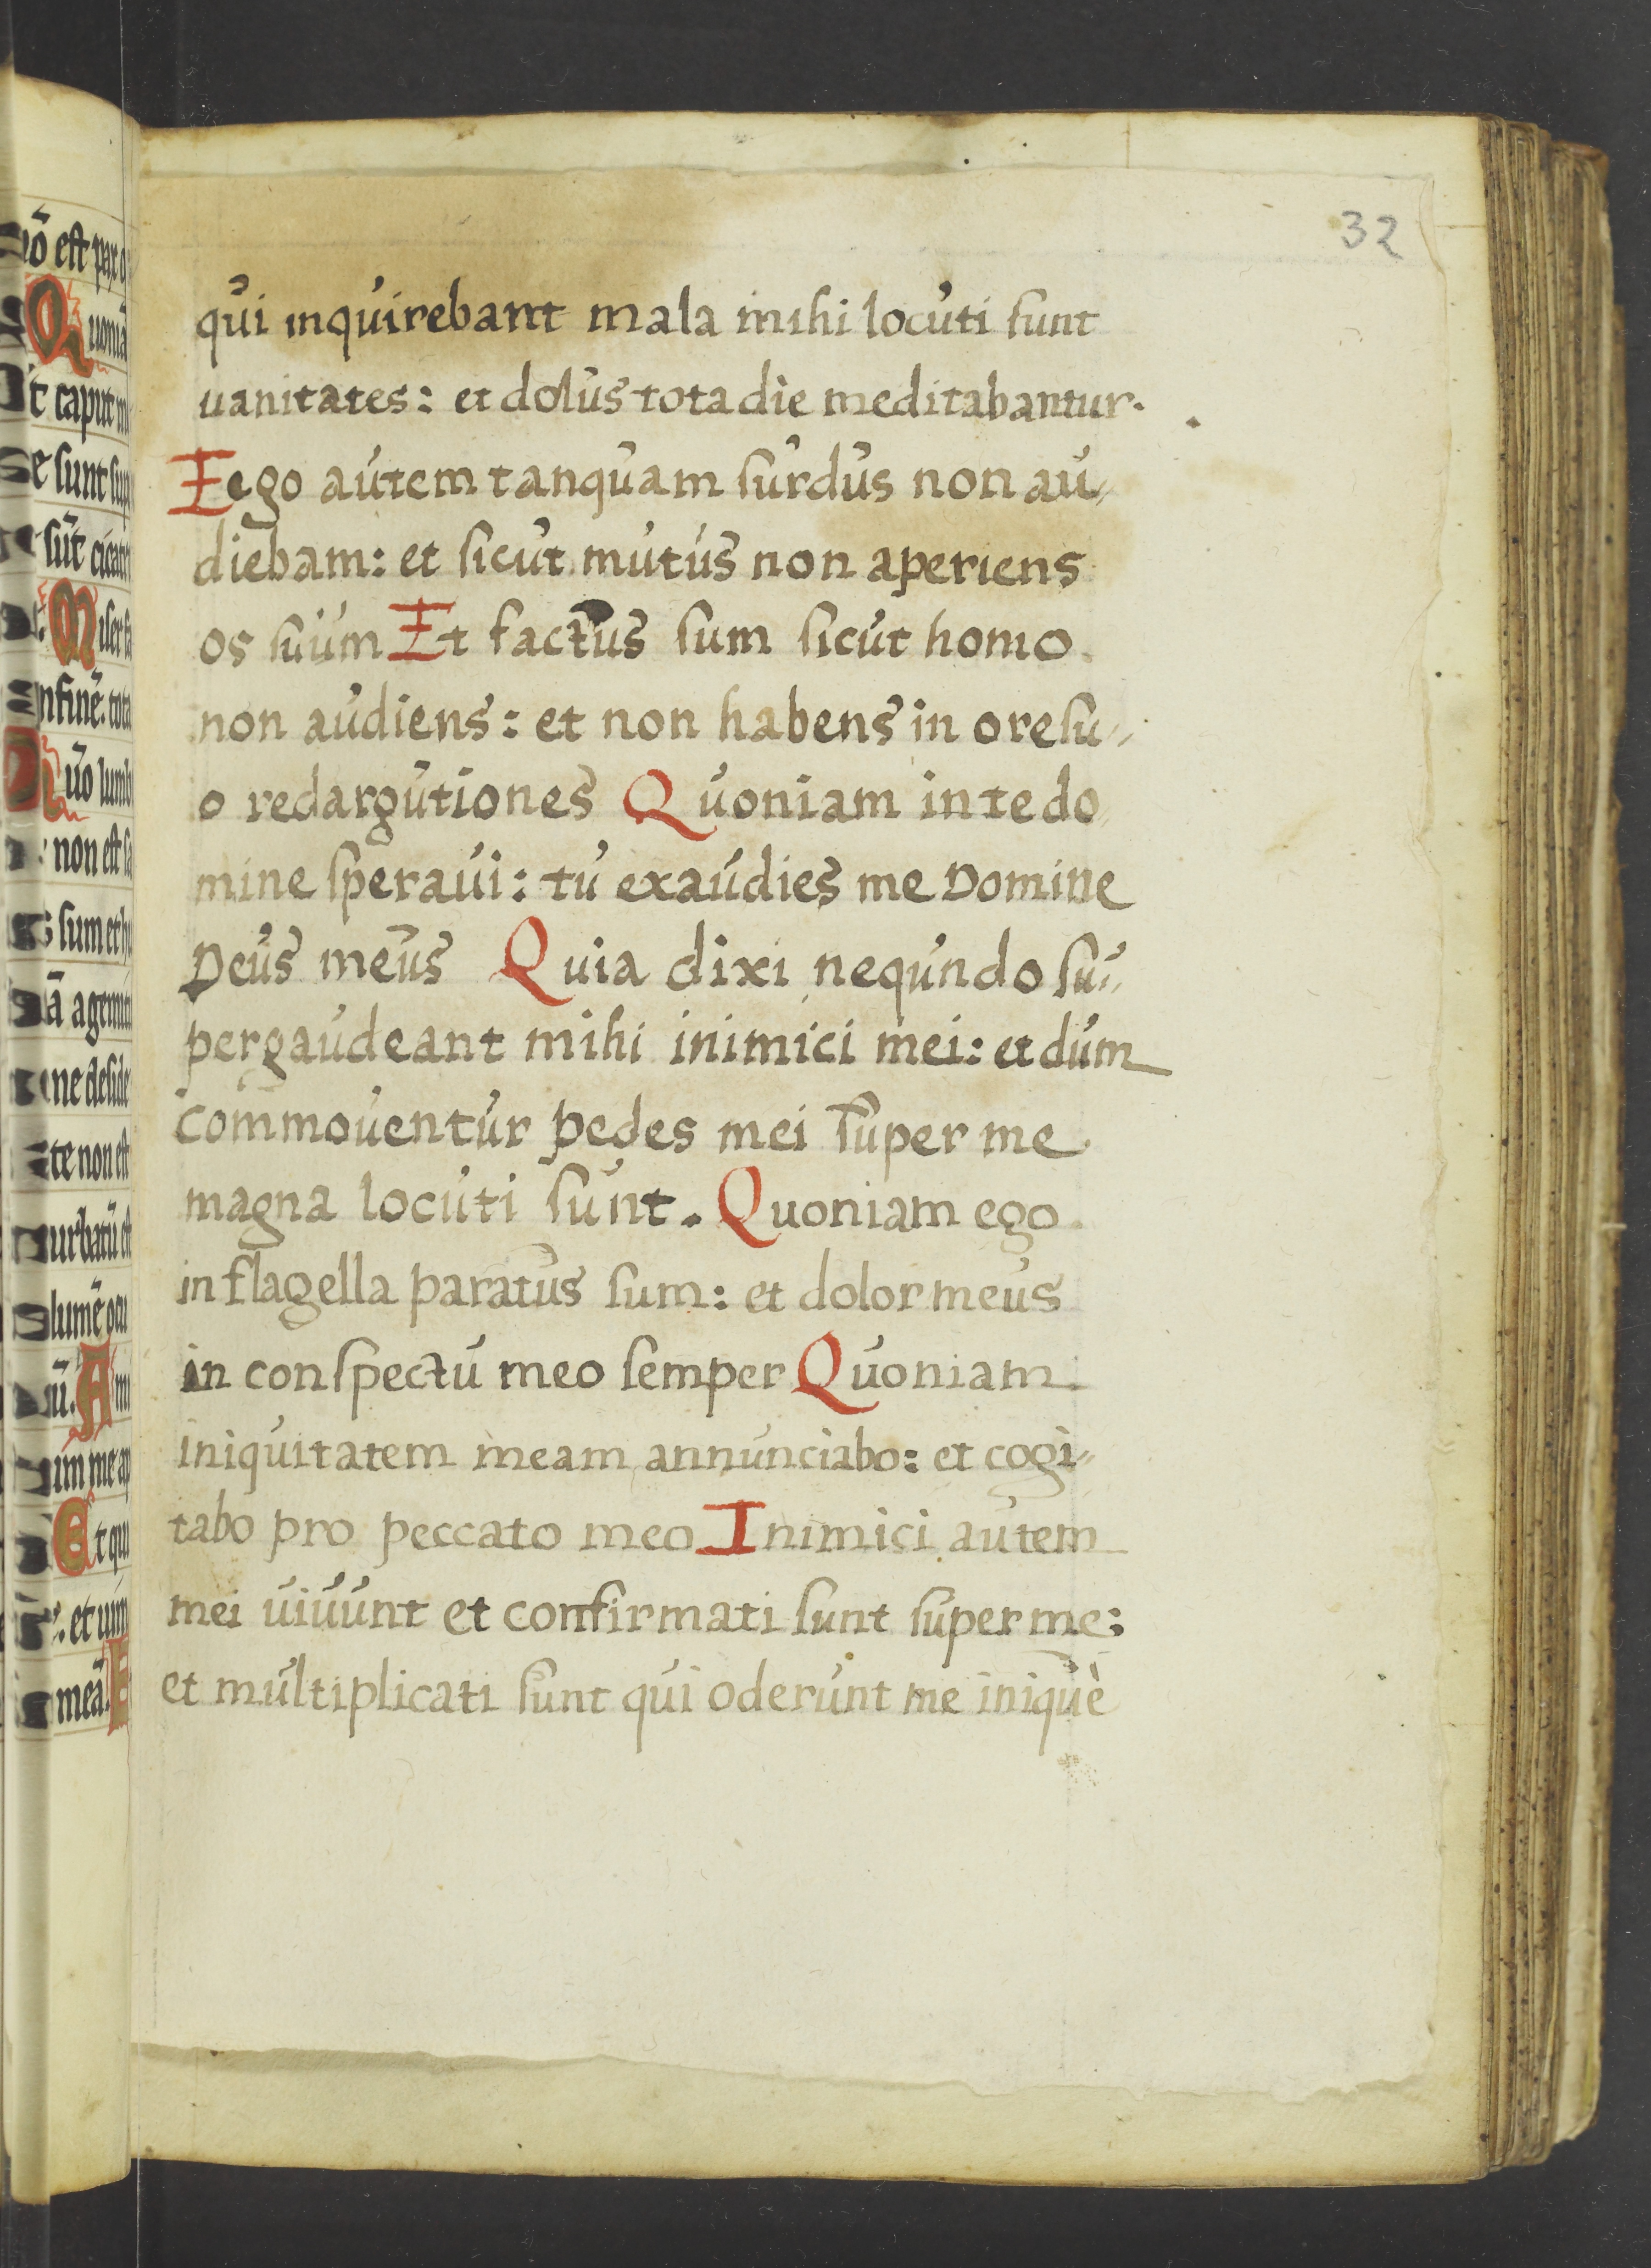 32
qui inquirebant mala mihi locuti sunt
uanitates: et dolus tota die meditabantur.
Eego autem tanquam surdus non au„
diebam: et sicut mutus non aperiens
os suum Et factus sum sicut homo
non audiens: et non habens in ore su„
o redargutiones Quoniam in te do
mine speraui: tu exaudies me Domine
Deus meus Quia dixi nequndo su„
pergaudeant mihi inimici mei: et dum
commouentur pedes mei super me
magna locuti sunt. Quoniam ego
in flagella paratus sum: et dolor meus
in conspectu meo semper Quoniam
iniquitatem meam annunciabo: et cogi„
tabo pro peccato meo Inimici autem
mei uiuunt et confirmati sunt super me:
et multiplicati sunt qui oderunt me iniquè